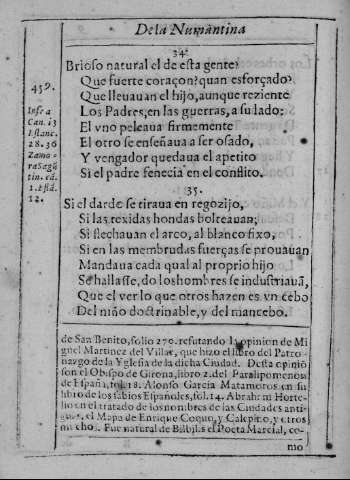 De la Numantina
34.
Brioso natural el de esta gente?
Que fuerte coraçon? quan esforçado?
Que lleuauan el hijo, aunque reziente
Los Padres, en las guerras, a su lado;
El vno peleaua firmemente
El otro se enseñaua a ser osado,
Y vengador quedaua el apetito
Si el padre fenecia en el conflito.
35.
Si el darde se tiraua en regozijo,
Si las texidas hondas bolteauan;
Si flechauan el arco, al blanco fixo,
Si en las membrudas fuerças se prouauan
Mandaua cada qual al proprio hijo
Se hallasse, do los hombres se industriauā,
Que el ver lo que otros hazen es vn cebo
Del niño doctrinable, y del mancebo.
459.
Infr a
Can. 13
Estanc.
28. 36
Zamo-
ra Sagū
tin. cā.
1. Estā.
12.
de San Benito, folio 270. refutando la opinion de Mi
guel Martinez del Villar, que hizo el libro del Patro-
nazgo de la Yglesia de la dicha Ciudad. Desta opiniō
son el Obispo de Girona, libro 2. del Paralipomenon
de España, fol. 18. Alonso Garcia Matamoros, en su
libro de los sabios Españoles, fol. 14. Abraham Horte-
lio en el tratado de los nombres de las Ciudades anti-
guas, el Mapa de Enrique Coquo, y Calepino, y otros
mucho. Fue natural de Bilbilis el Poeta Marcial, co-
mo